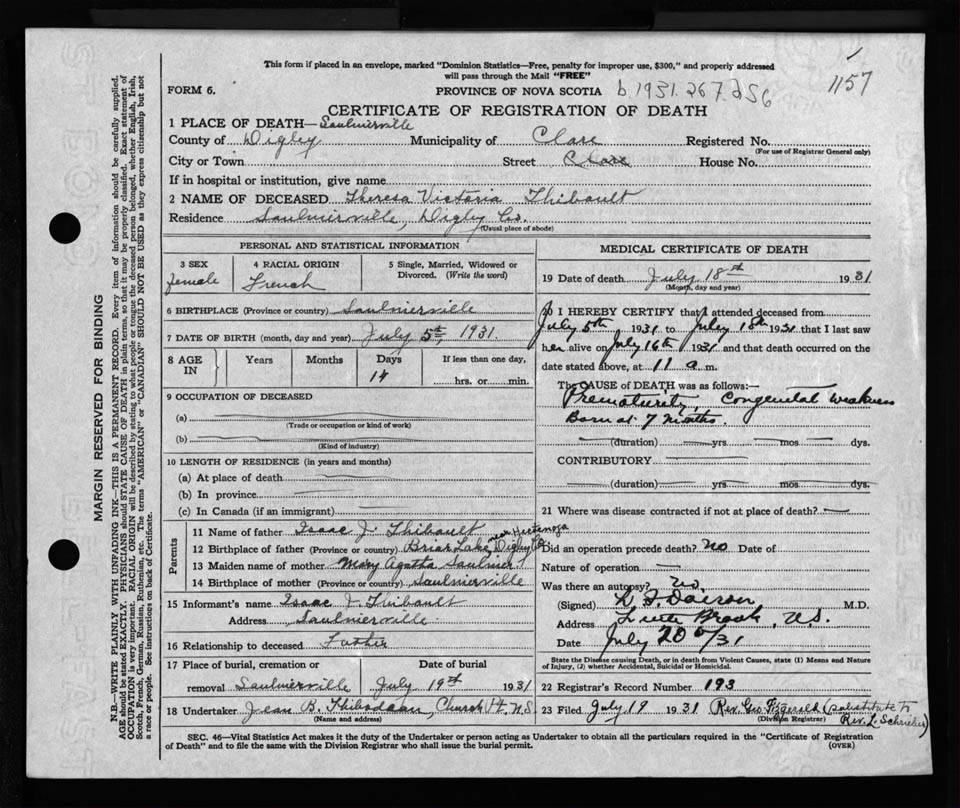 This form if placed in an envelope, marked "Dominion Statistics—Free, penalty for improper use, $300," and properly addressed
will pass through the Mail "FREE"
1157
FORM 6.
PROVINCE OF NOVA SCOTIA b 1931.267.256
CERTIFICATE OF REGISTRATION OF DEATH
1 PLACE OF DEATH—Saulnierville
County of Digby Municipality of Clare Registered No.
(For use of Registrar General only)
City or Town Street Clare House No.
If in hospital or institution, give name
2 NAME OF DECEASED Theresa Victoria Thibault
Residence Saulnierville, Digby Co.
(Usual place of abode)
PERSONAL AND STATISTICAL INFORMATION
3 SEX female
4 RACIAL ORIGIN French
5 Single, Married, Widowed or
Divorced. (Write the word)
6 BIRTHPLACE (Province or country) Saulnierville
7 DATE OF BIRTH (month, day and year) July 5th, 1931.
8 AGE IN Years Months Days 14 If less than one day,
hrs. or min.
9 OCCUPATION OF DECEASED
(a)
(Trade or occupation or kind of work)
(b)
(Kind of industry)
10 LENGTH OF RESIDENCE (in years and months)
(a) At place of death
(b) In province
(c) In Canada (if an immigrant)
Parents
11 Name of father Isaac J. Thibault
12 Birthplace of father (Province or country) Briar Lake, near Hectanooga Digby Co.
13 Maiden name of mother Mary Agatha Saulnier
14 Birthplace of mother (Province or country) Saulnierville
15 Informant's name Isaac J. Thibault
Address Saulnierville.
16 Relationship to deceased Father
17 Place of burial, cremation or Date of burial
removal Saulnierville July 19th 1931
18 Undertaker Jean B. Thibodeau, Church Pt. N.S.
(Name and address)
MEDICAL CERTIFICATE OF DEATH
19 Date of death July 18th 1931
(Month, day and year)
20 I HEREBY CERTIFY that I attended deceased from
July 5th 1931 to July 18th 1931 that I last saw
her alive on July 16th 1931 and that death occurred on the
date stated above, at 11 a m.
The CAUSE OF DEATH was as follows:—
Prematurity, Congenital weakness
Born at 7 months.
(duration) yrs mos dys.
CONTRIBUTORY
(duration) yrs mos dys.
21 Where was disease contracted if not at place of death?
Did an operation precede death? no Date of
Nature of operation
Was there an autopsy? no
(Signed) M.D.
Address Brook, N.S.
Date July 20 /31
State the Disease causing Death, or in death from Violent Causes, state (1) Means and Nature
of Injury, (2) whether Accidental, Suicidal or Homicidal.
22 Registrar's Record Number 193
23 Filed July 19 1931 Rev. Geo. Fitzgerald (substitute to
(Division Registrar) Rev. L.
SEC. 46—Vital Statistics Act makes it the duty of the Undertaker or person acting as Undertaker to obtain all the particulars required in the "Certificate of Registration
of Death" and to file the same with the Division Registrar who shall issue the burial permit. (OVER)
MARGIN RESERVED FOR BINDING
N.B.—WRITE PLAINLY WITH UNFADING INK—THIS IS A PERMANENT RECORD. Every item of information should be carefully supplied.
AGE should be stated EXACTLY. PHYSICIANS should STATE CAUSE OF DEATH in plain terms, so that it may be properly classified. Exact statement of
OCCUPATION is very important. RACIAL ORIGIN will be described by stating to what people or tongue the deceased person belonged, whether English, Irish,
Scotch, French, German, Russian, Ruthenian, etc. The terms "AMERICAN" or "CANADIAN" SHOULD NOT BE USED as they express citizenship but not
a race or people. See instructions on back of Certificate.